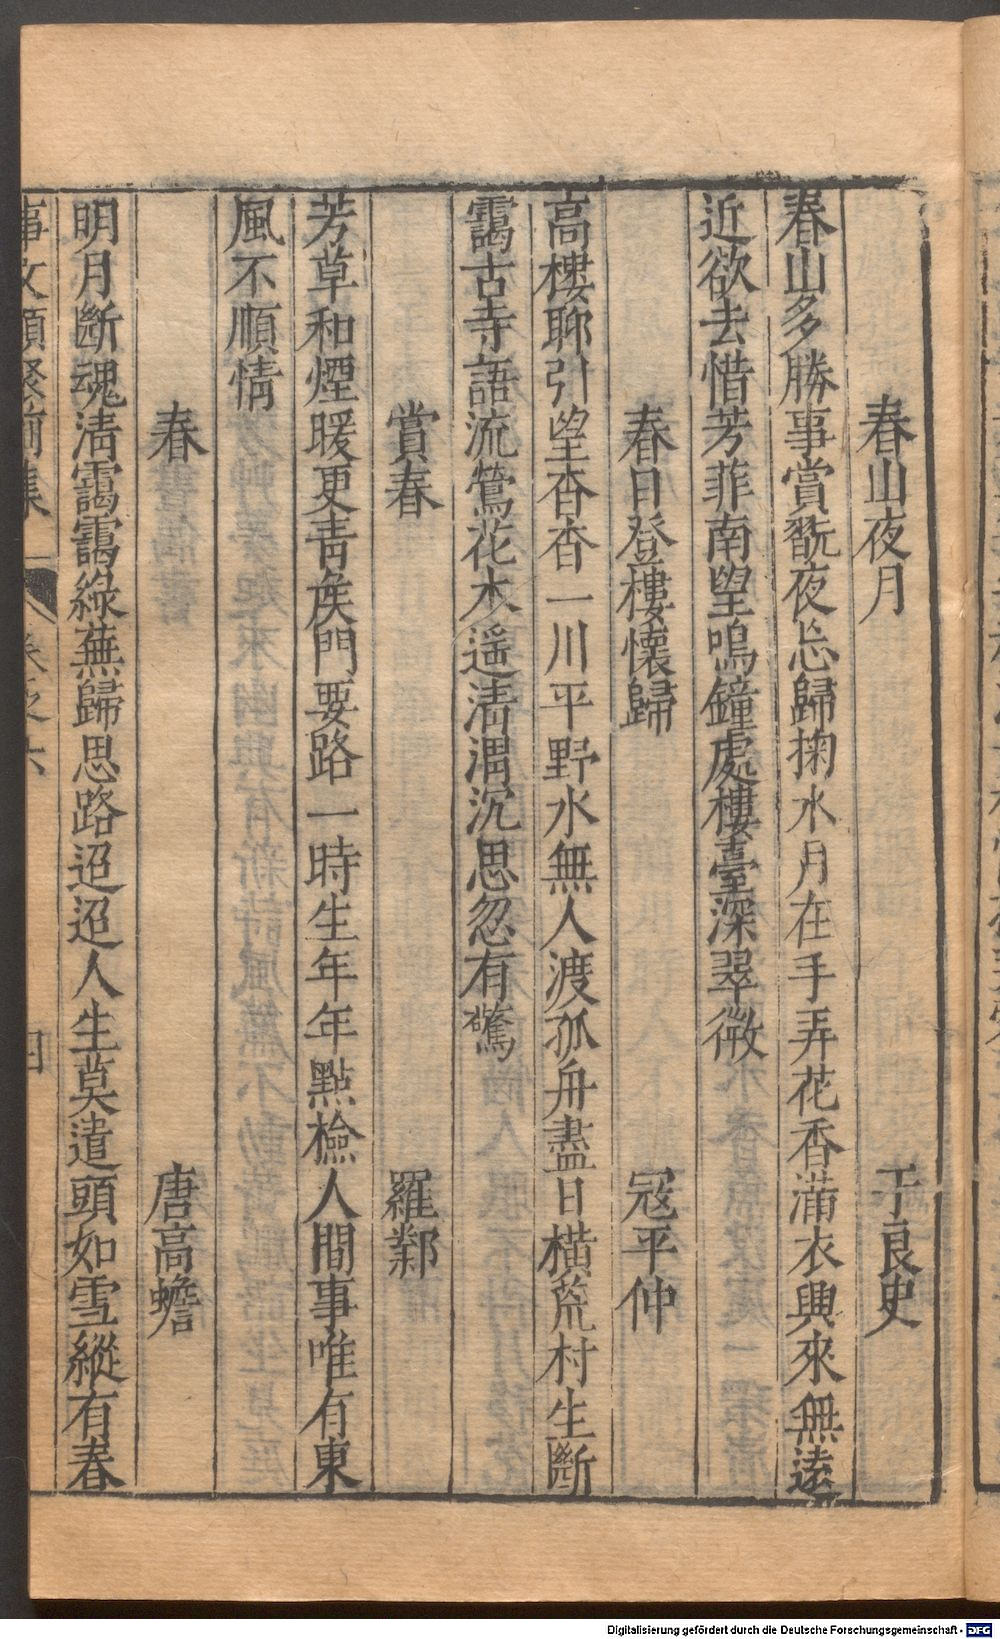 春山夜月　于良史
春山多勝事賞翫夜忘歸掬水月在手弄花香滿衣興來無遠
近欲去惜芳菲南望鳴鐘處樓臺深翠微
春日登樓懷歸　冦平仲
高樓聊引望杳杳一川平野水無人渡孤舟盡日橫荒村生斷
靄古寺語流鶯花木遥清渭沉思忽有驚
賞春　羅鄴
芳草和煙暖更青矦門要路一時生年年點檢人間事唯有東
風不順情
春　唐高蟾
明月斷魂清靄靄綠蕪歸思路迢迢人生莫遣頭如雪縱有春
事文類聚前集　卷之六　四
Digitalisierung gefördert durch die Deutsche Forschungsgemeinschaft - DFG